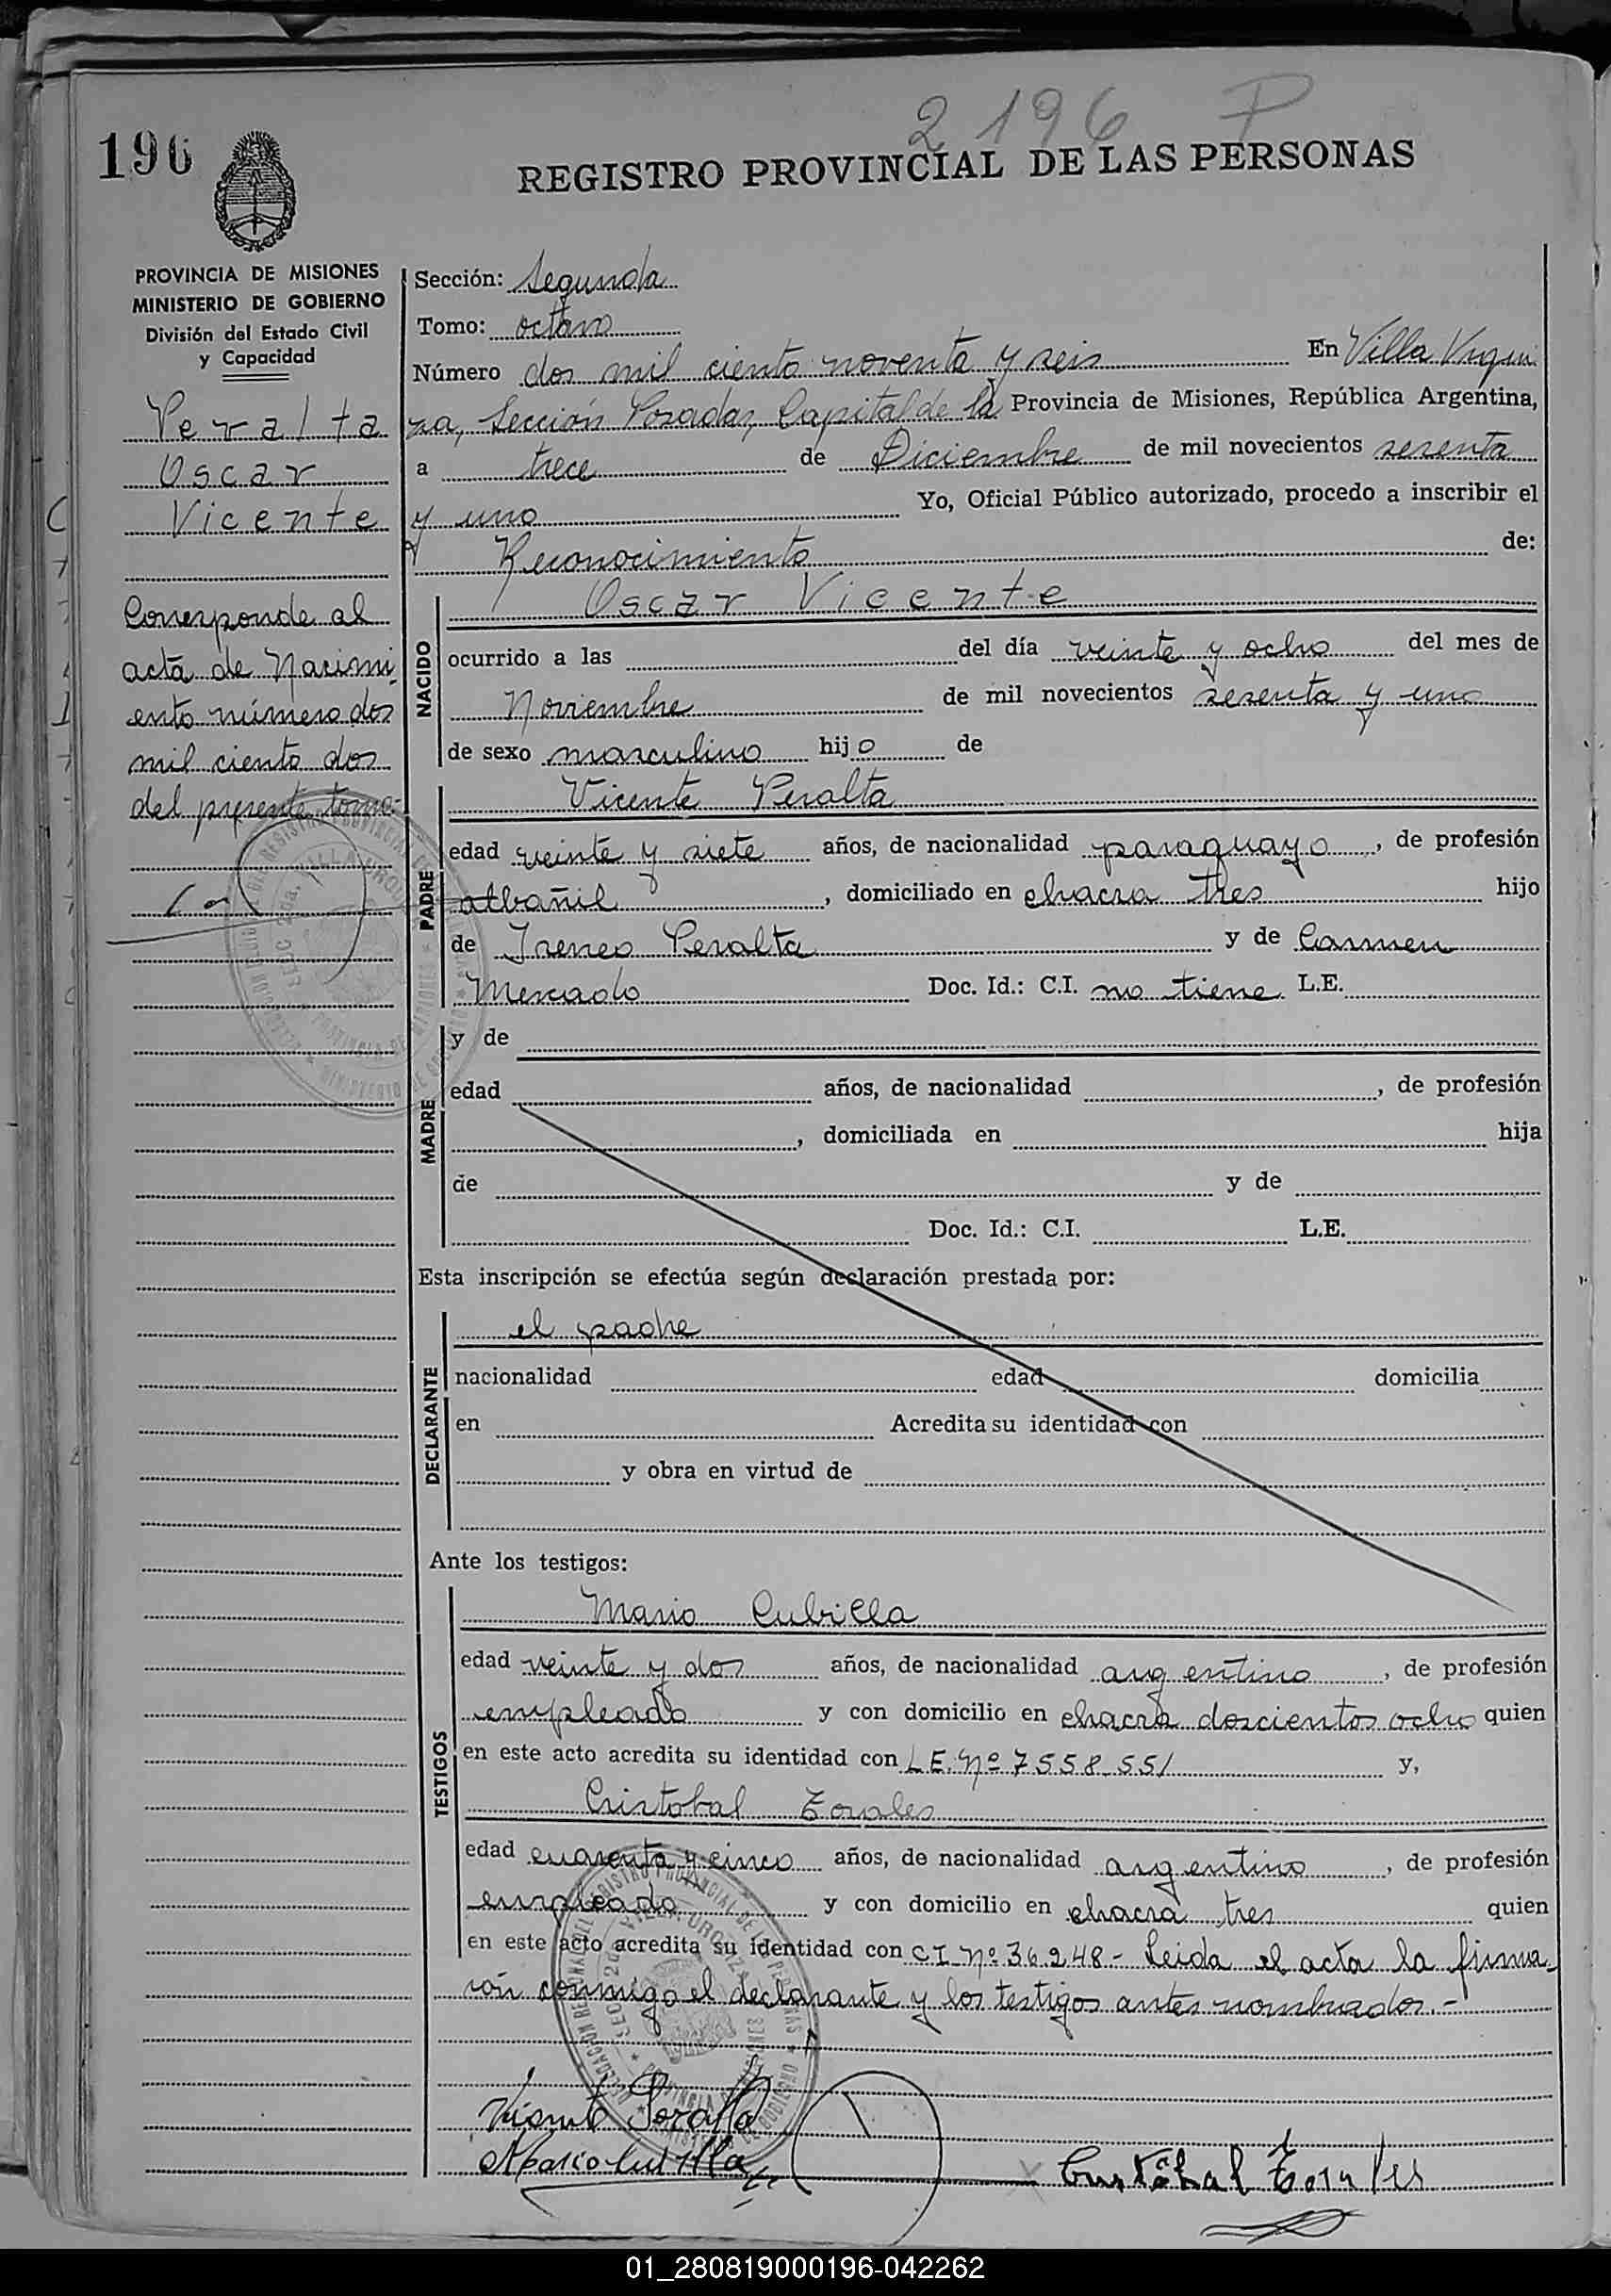 2196 P
196
REGISTRO PROVINCIAL DE LAS PERSONAS
PROVINCIA DE MISIONES
MINISTERIO DE GOBIERNO
División del Estado Civil
y Capacidad
Peralta
Oscar
Vicente
Corresponde al
acta de Nacimi
ento número dos
mil ciento dos
del presente tomo.-
Sección: Segunda
Tomo: octavo
Número dos mil ciento noventa y seis En Villa Urqui
za, Sección Posadas, Capital de la Provincia de Misiones, República Argentina,
a trece de Diciembre de mil novecientos sesenta
y uno Yo, Oficial Público autorizado, procedo a inscribir el
Reconocimiento de:
NACIDO
Oscar Vicente
ocurrido a las del día veinte y ocho del mes de
Noviembre de mil novecientos sesenta y uno
de sexo masculino hijo de
PADRE
Vicente Peralta
edad veinte y siete años, de nacionalidad paraguayo, de profesión
albañil, domiciliado en chacra tres hijo
de Ireneo Peralta y de Carmen
Mercado Doc. Id.: C.I. no tiene L.E.
MADRE
y de
edad años, de nacionalidad , de profesión
, domiciliada en hija
de y de
Doc. Id.: C.I. L.E.
Esta inscripción se efectúa según declaración prestada por:
DECLARANTE
el padre
nacionalidad edad domicilia
en Acredita su identidad con
y obra en virtud de
Ante los testigos:
TESTIGOS
Mario Cubilla
edad veinte y dos años, de nacionalidad argentino, de profesión
empleado y con domicilio en chacra doscientos ocho quien
en este acto acredita su identidad con L.E. Nº 7558.551 y,
Cristobal Torales
edad cuarenta y cinco años, de nacionalidad argentino, de profesión
empleado y con domicilio en chacra tres quien
en este acto acredita su identidad con C.I. Nº 36.248.- Leida el acta la firma-
rón conmigo el declarante y los testigos antes nombrados.-
Vicente Peralta
Mario Cubilla
Cristóbal Torales
01_280819000196-042262